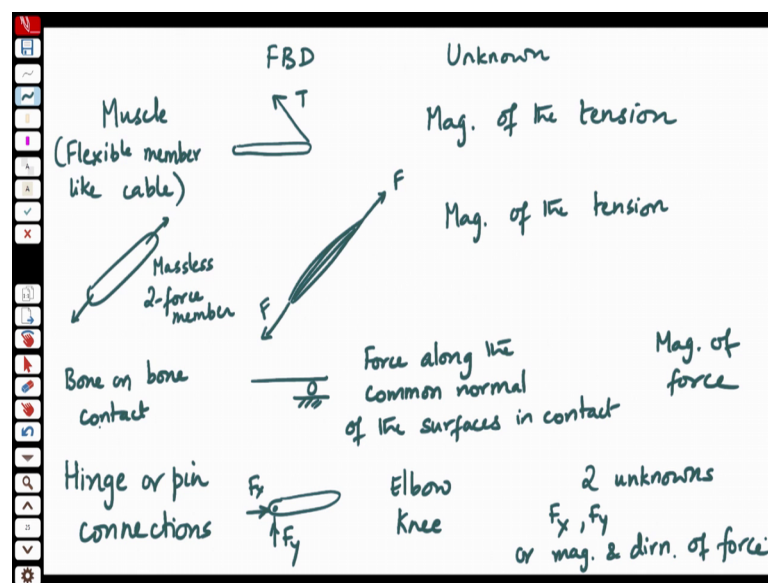 FBD Unknown
Muscle
(Flexible member
like cable)
T
Mag. of the tension
F
Mag. of the tension
Massless
2-force
member
F
Bone on bone
contact
Force along the
common normal
of the surfaces in contact
Mag. of
force
Hinge or pin
connections
Fx
Fy
Elbow
Knee
2 unknowns
Fx, Fy
or mag. & dirn. of force